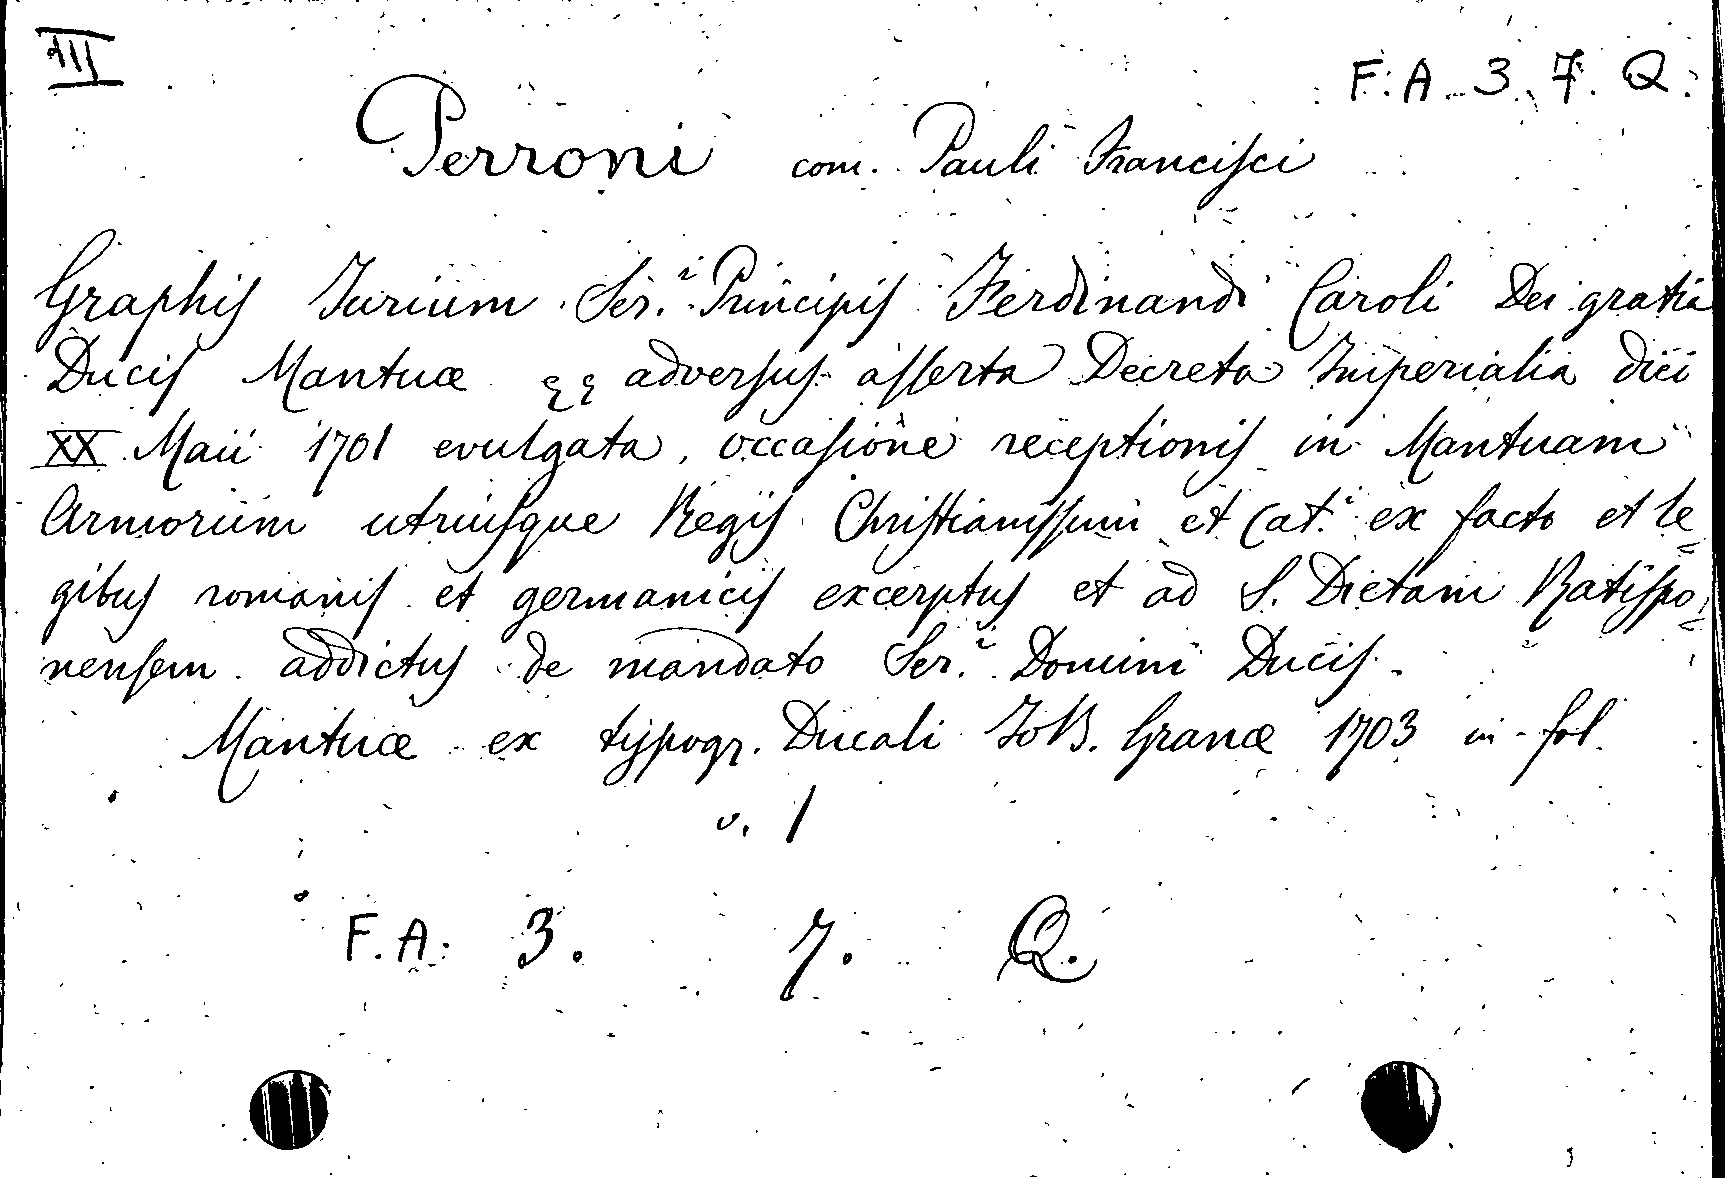 III
F. A. 3. 7. Q.
Perroni com. Pauli Francisci
Graphis Jurium Ser.i Principis Ferdinandi Caroli Dei gratia
Ducis Mantuæ adversus asserta Decreta Imperialia diei
XX Maii 1701 evulgata, occasione receptionis in Mantuam
Armorum utriusque Regis Christianissimi et Cat.i ex facto et le=
gibus romanis et germanicis excerptus et ad S. Dietam Ratispo=
nensem addictus de mandato Ser.i Domini Ducis.
Mantuæ ex typogr. Ducali Jo B. Granæ 1703 in-fol.
v. 1
F. A. 3. 7. Q.